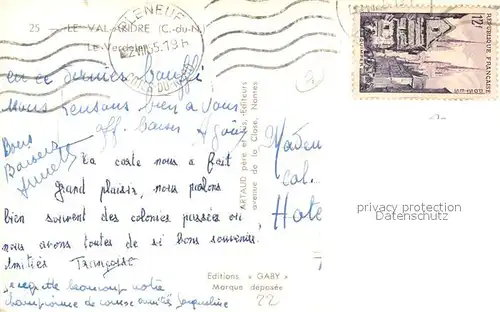 25 — LE VAL ANDRE (C.-du-N.)
Le Verdelet
PLENEUF
en ce dernier
Nous pensons bien à vous
aff. baiser
Bons
Baisers
Annette
La carte nous a fait
grand plaisir, nous parlons
bien souvent des colonies passées où
nous avons toutes de si bons souvenirs.
Amitiés Françoise
je regrette beaucoup notre
championne de course amitiés Jacqueline
ARTAUD père et fils, Editeurs
avenue de la Close, Nantes
Editions « GABY »
Marque déposée
22
Madem
col.
Hote
12F
REPUBLIQUE FRANÇAISE
privacy protection
Datenschutz